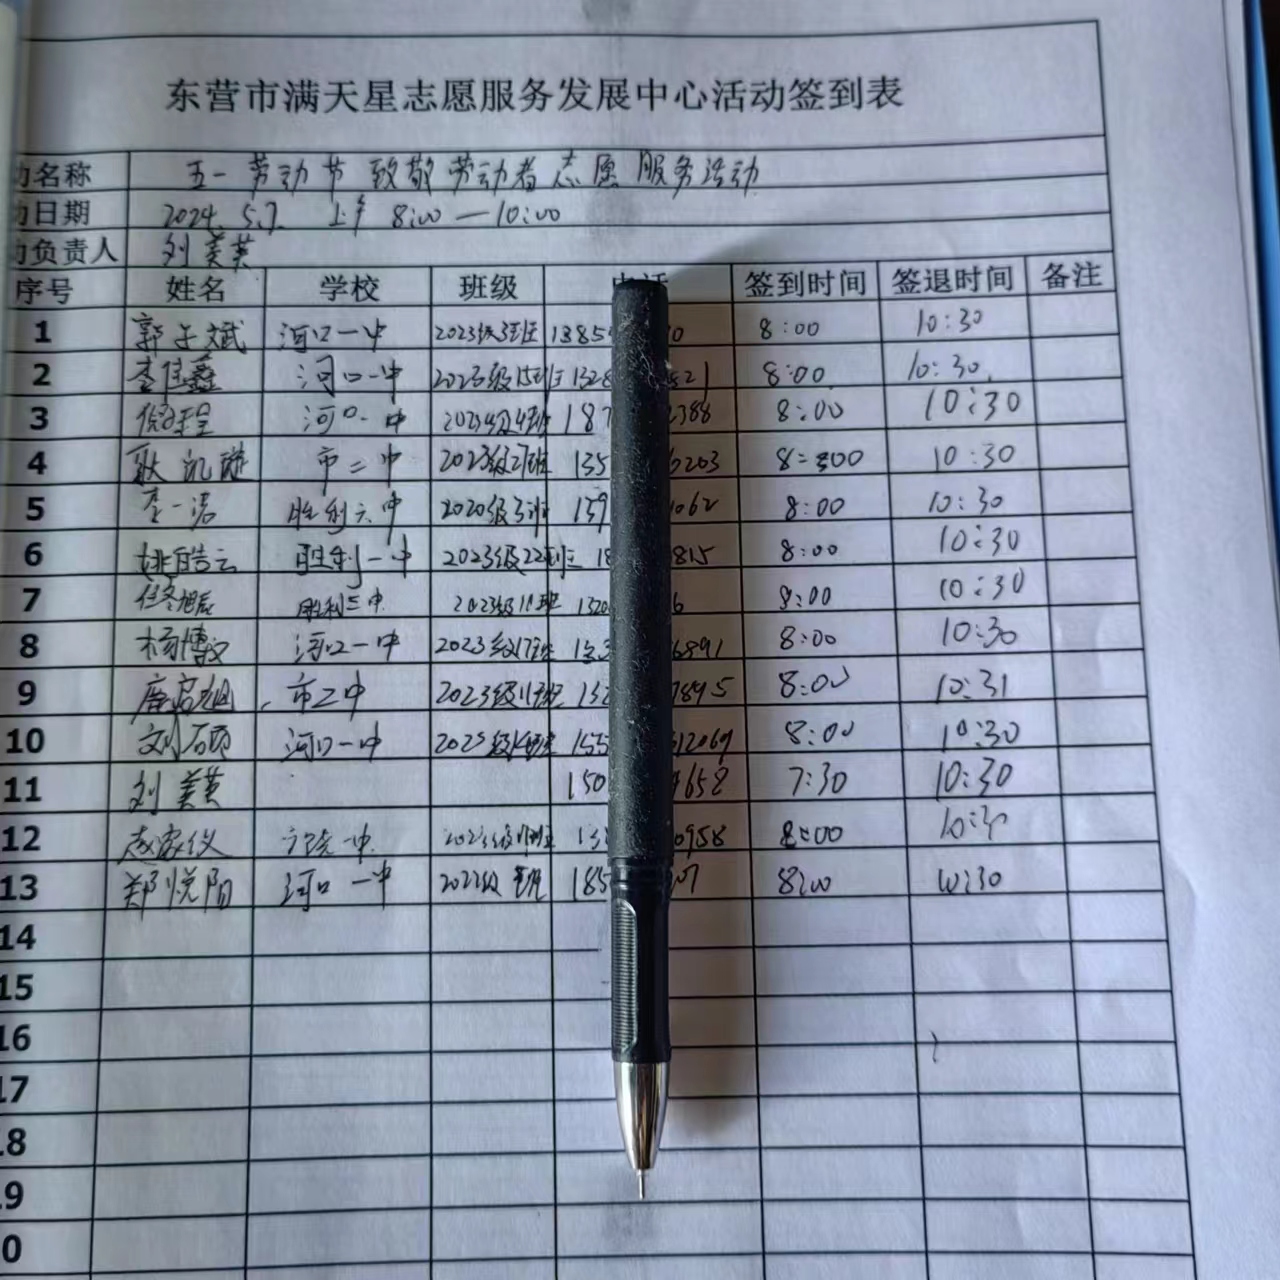 东营市满天星志愿服务发展中心活动签到表
动名称 五一劳动节致敬劳动者志愿服务活动
动日期 2024.5.7. 上午 8:00—10:00
动负责人 刘美英
序号 姓名 学校 班级 电话 签到时间 签退时间 备注
1 郭子斌 河口一中 2023级3班 1385 0 8:00 10:30
2 李佳鑫 河口一中 2023级15班 1328 821 8:00 10:30
3 倪程 河口一中 2023级4班 187 2388 8:00 10:30
4 耿凯璇 市二中 2023级27班 135 6203 8:00 10:30
5 李一诺 胜利六中 2020级3班 139 1062 8:00 10:30
6 姚皓云 胜利一中 2023级22班 18 815 8:00 10:30
7 胜利三中 2023级11班 1320 6 8:00 10:30
8 杨博文 河口一中 2023级17班 153 6891 8:00 10:30
9 市二中 2023级11班 132 7895 8:00 10:31
10 刘硕 河口一中 155 12069 8:00 10:30
11 刘美英 150 7658 7:30 10:30
12 赵家仪 一中 13 0958 8:00 10:30
13 郑悦阳 河口一中 185 07 8:00 10:30
14
15
16
17
18
19
0